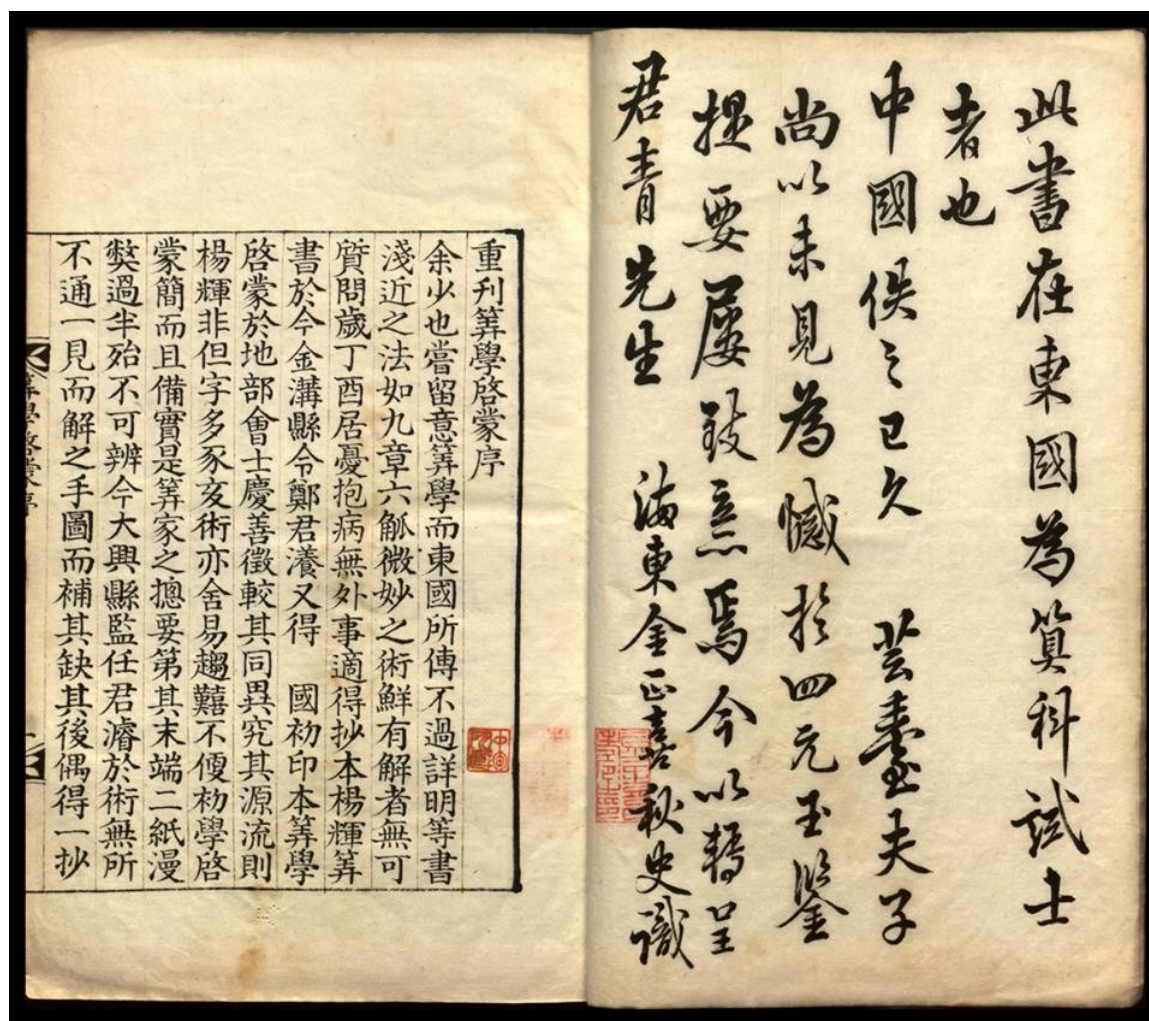 此書在東國為算科試士
者也
中國佚之已久 芸臺夫子
尚以未見為憾於四元玉鑒
提要屢致意焉今以轉呈
君青先生 海東金正喜秋史識
重刊筭學啓蒙序
余少也嘗留意筭學而東國所傳不過詳明等書
淺近之法如九章六觚微妙之術鮮有解者無可
質問歲丁酉居憂抱病無外事適得抄本楊輝筭
書於今金溝縣令鄭君瀁又得 國初印本筭學
啓蒙於地部會士慶善徵較其同異究其源流則
楊輝非但字多豕亥術亦舍易趨難不便初學啓
蒙簡而且備實是筭家之摠要第其末端二紙漫
獘過半殆不可辨今大興縣監任君濬於術無所
不通一見而解之手圖而補其缺其後偶得一抄
筭學啓蒙序